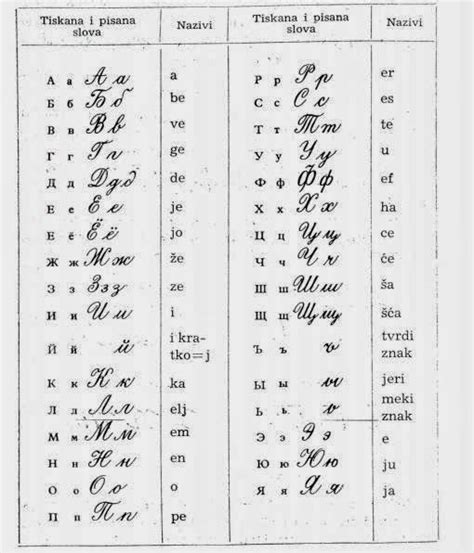 Tiskana i pisana slova
Nazivi
А а А а a
Б б Б б be
В в В в ve
Г г Г г ge
Д д Д д д de
Е е Е е je
Е ё Ё ё jo
Ж ж Ж ж že
З з З з з ze
И и И и i
Й й й i kra-
tko=j
К к К к ka
Л л Л л elj
М м М м em
Н н Н н en
О о О о o
П п П п pe
Tiskana i pisana slova
Nazivi
Р р Р р er
С с С с es
Т т Т т te
У у У у u
Ф ф Ф ф ef
Х х Х х ha
Ц ц Ц ц ce
Ч ч Ч ч če
Ш ш Ш ш ša
Щ щ Щ щ šća
Ъ ъ ъ tvrdi
znak
Ы ы ы jeri
Ь ь ь meki
znak
Э э Э э e
Ю ю Ю ю ju
Я я Я я ja